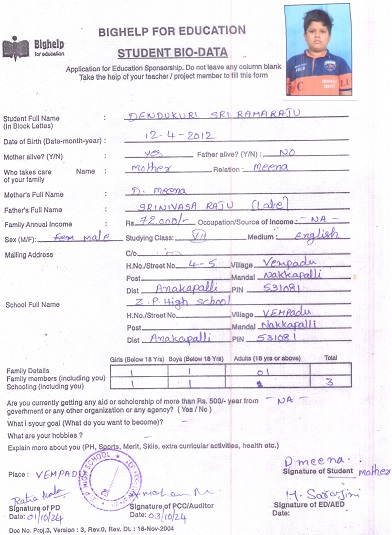 Bighelp
for education
BIGHELP FOR EDUCATION
STUDENT BIO-DATA
Application for Education Sponsorship. Do not leave any column blank
Take the help of your teacher / project member to fill this form
Student Full Name : DENDUKURI SRI RAMARAJU
(In Block Letters)
Date of Birth (Date-month-year) : 12-4-2012
Mother alive? (Y/N) : yes Father alive? (Y/N) : NO
Who takes care Name : mother Relation : Meena
of your family
Mother's Full Name : D. Meena
Father's Full Name : SRINIVASA RAJU (Late)
Family Annual Income : Rs 72000/- Occupation/Source of Income : - NA -
Sex (M/F): male Studying Class: VII Medium : English
Mailing Address C/o
H.No./Street No 4-5 Village Vempadu
Post Mandal Nakkapalli
Dist Anakapalli PIN 531081
School Full Name : Z.P. High school
H.No./Street No Village VEMPADU
Post Mandal Nakkapalli
Dist Anakapalli PIN 531081
Girls (Below 18 Yrs) Boys (Below 18 Yrs) Adults (18 yrs or above) Total
Family Details
Family members (including you) 1 1 01
Schooling (including you) 1 1 3
Are you currently getting any aid or scholarship of more than Rs. 500/- year from - NA -
government or any other organization or any agency? ( Yes / No )
What is your goal (What do you want to become)-
What are your hobbies ? -
Explain more about you (PH, Sports, Merit, Skills, extra curricular activities, health etc.)
D meena.
Place : VEMPADU
Signature of Student mother
M. Sarojini
Signature of PD Signature of PCC/Auditor Signature of ED/AED
Date: 01/10/24 Date: 03/10/24 Date:
Doc No. Proj.3, Version : 3, Rev.0, Rev. Dt. : 16-Nov-2004